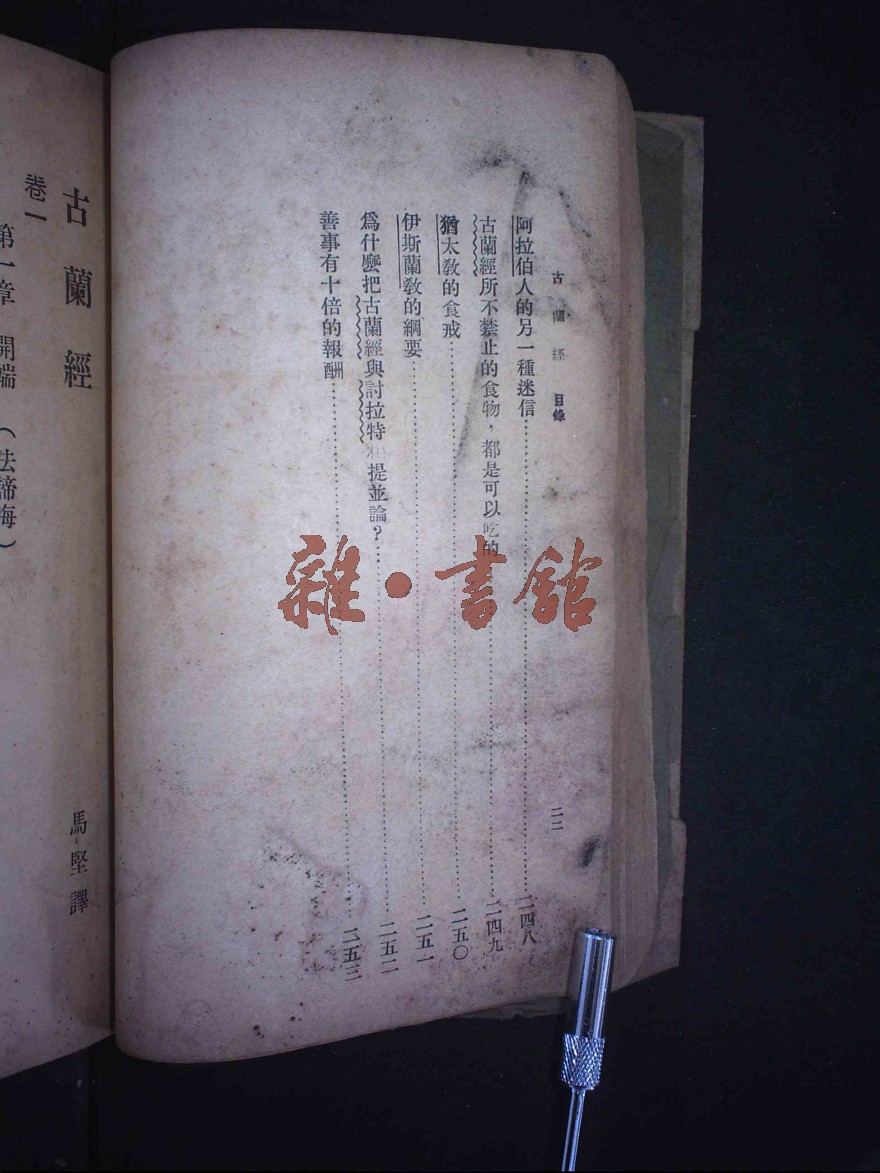 古蘭經 目錄
二二
阿拉伯人的另一種迷信……二四八
古蘭經所不禁止的食物，都是可以吃的……二四九
猶太教的食戒……二五〇
伊斯蘭教的綱要……二五一
爲什麼把古蘭經與討拉特相提並論？……二五二
善事有十倍的報酬……二五三
古蘭經
馬堅譯
卷一
第一章 開端 （法諦海）
雜·書館